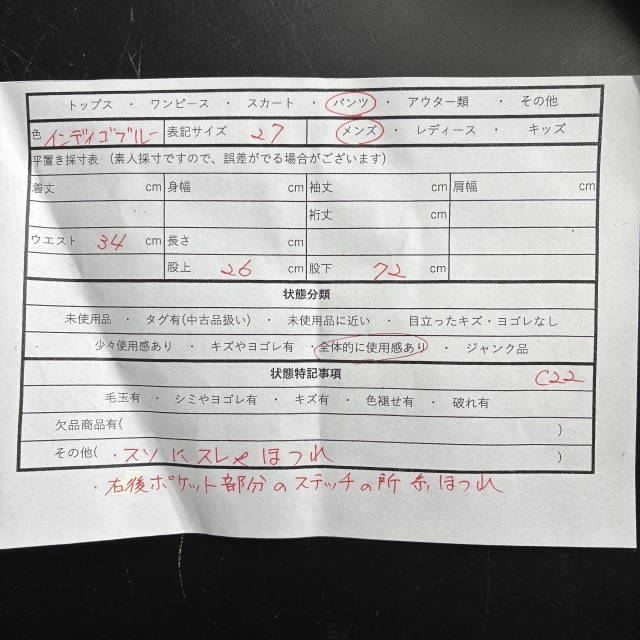 トップス ・ ワンピース ・ スカート ・ パンツ ・ アウター類 ・ その他
色 インディゴブルー 表記サイズ 27 メンズ ・ レディース ・ キッズ
平置き採寸表（素人採寸ですので、誤差がでる場合がございます）
着丈 cm 身幅 cm 袖丈 cm 肩幅 cm
裄丈 cm
ウエスト 34 cm 長さ cm
股上 26 cm 股下 72 cm
状態分類
未使用品 ・ タグ有(中古品扱い) ・ 未使用品に近い ・ 目立ったキズ・ヨゴレなし
・ 少々使用感あり ・ キズやヨゴレ有 ・ 全体的に使用感あり ・ ジャンク品
状態特記事項 C22
毛玉有 ・ シミやヨゴレ有 ・ キズ有 ・ 色褪せ有 ・ 破れ有
欠品商品有( )
その他( ・スソにスレやほつれ )
・右後ポケット部分のステッチの所 糸ほつれ